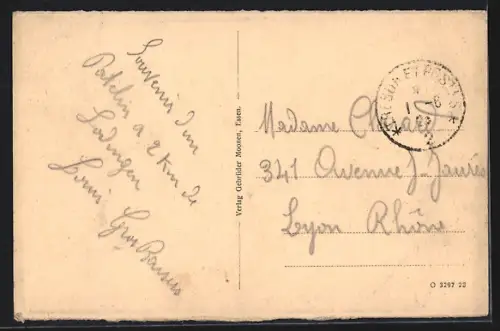 Souvenir d'un
Patelin a 2 Km de
Solingen
Louis Gros Baisers
Verlag Gebrüder Moosen, Essen.
TRESOR ET POSTES
Madame
341 Avenue J-Jaurès
Lyon Rhône
O 3297 22